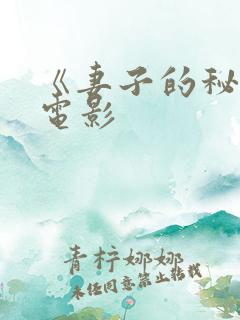 《妻子的秘
电影
青柠娜娜
未经同意禁止转载